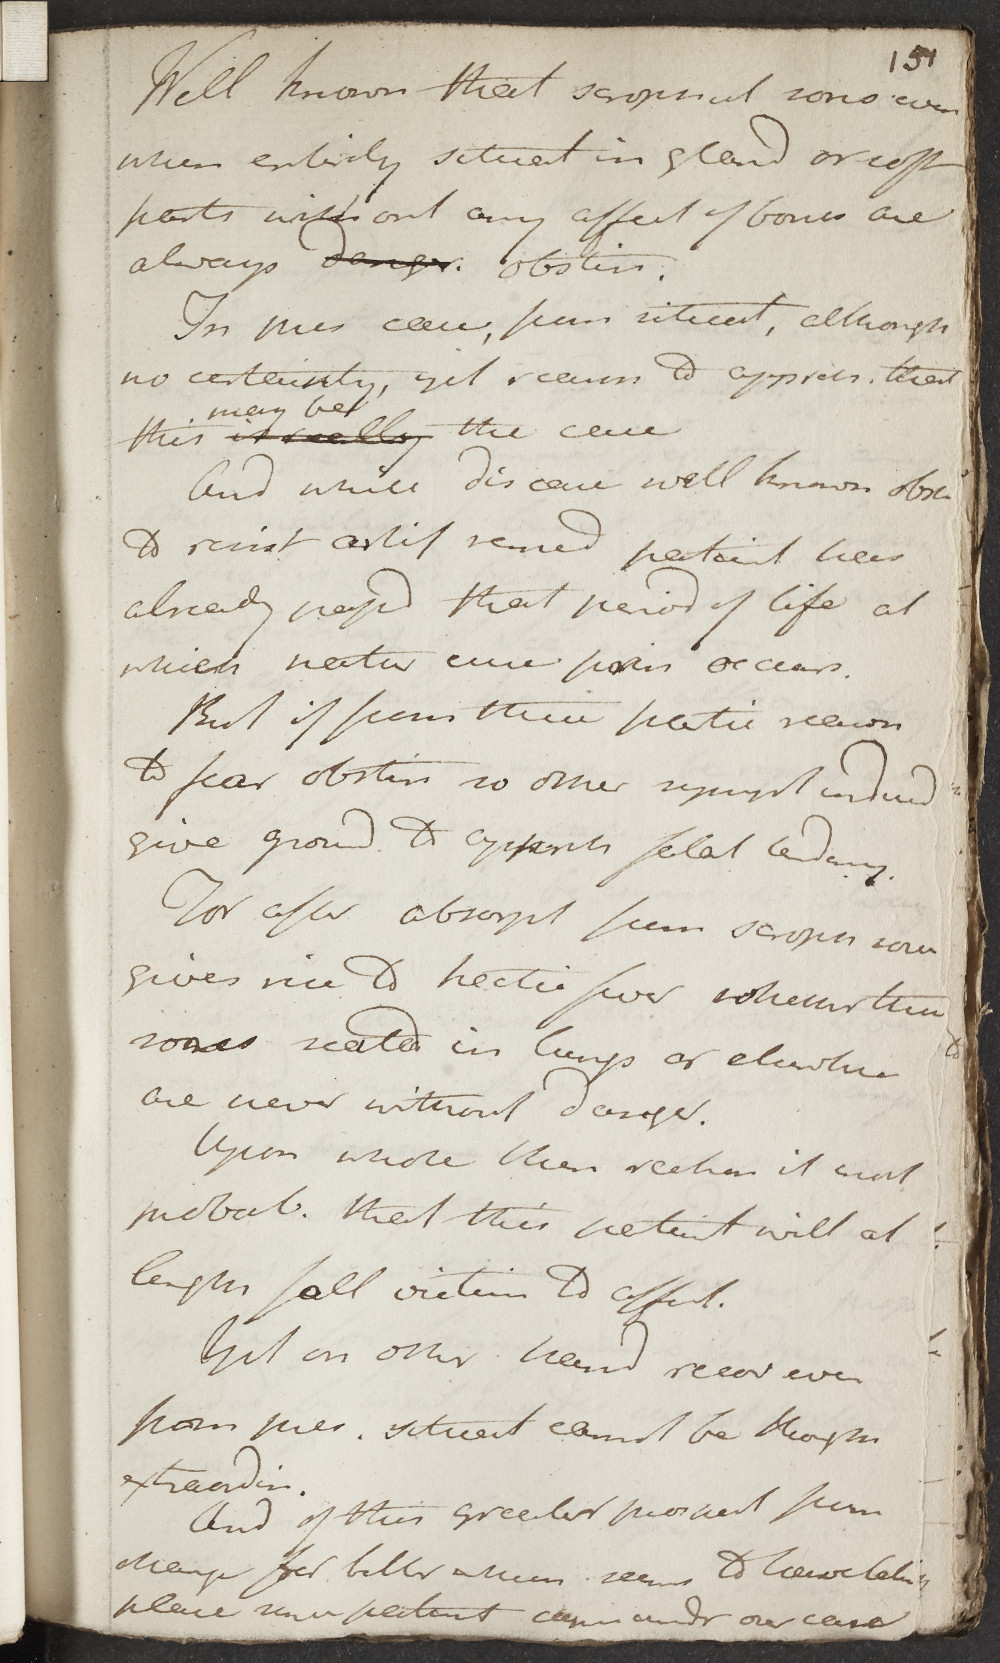 151
Well known that scrophul sores even
when entirely situat in gland or soft
parts without any affect of bones are
always danger. obstin.
In pres case, from situat, although
no certainty, yet reason to appreh. that
may be
this is really the case
And while disease well known obst
to resist artif remed patient has
already passd that period of life at
which natur cure occurs.
But if from these partic reason
to fear obstin so other sympt indeed
give ground to appreh fatal tendency.
For after absorpt from scroph sores
gives rise to hectic fever whether these
sores seated in lungs or elsewhere
are never without danger.
Upon whole then reckon it most
probab. that this patient will at
length fall victim to affect.
Yet on other hand recov even
from pres. situat cannot be thought
extraordin.
And of this greater prospect from
change for better which seems to have taken
place since patient came under our care